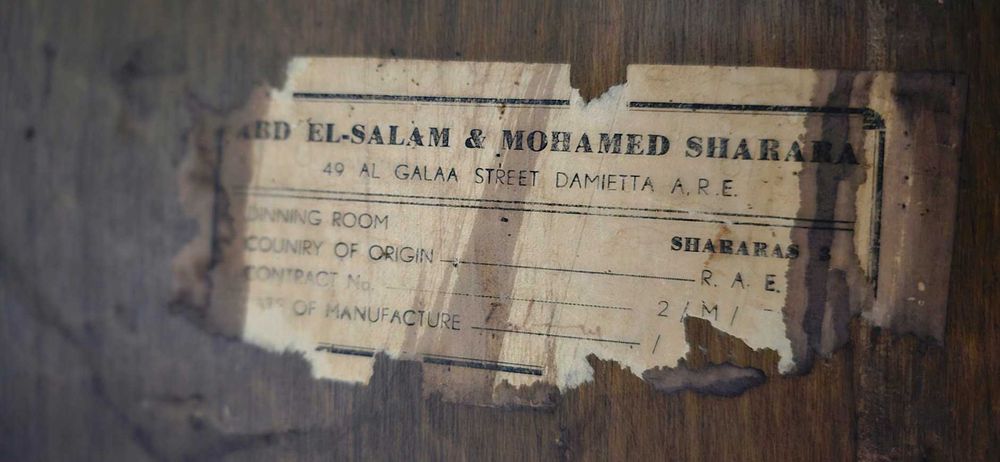 ABD EL-SALAM & MOHAMED SHARARA
49 AL GALAA STREET DAMIETTA A.R.E.
DINNING ROOM SHARARAS 3
COUNIRY OF ORIGIN R. A. E.
CONTRACT No. 2/M/
OF MANUFACTURE /